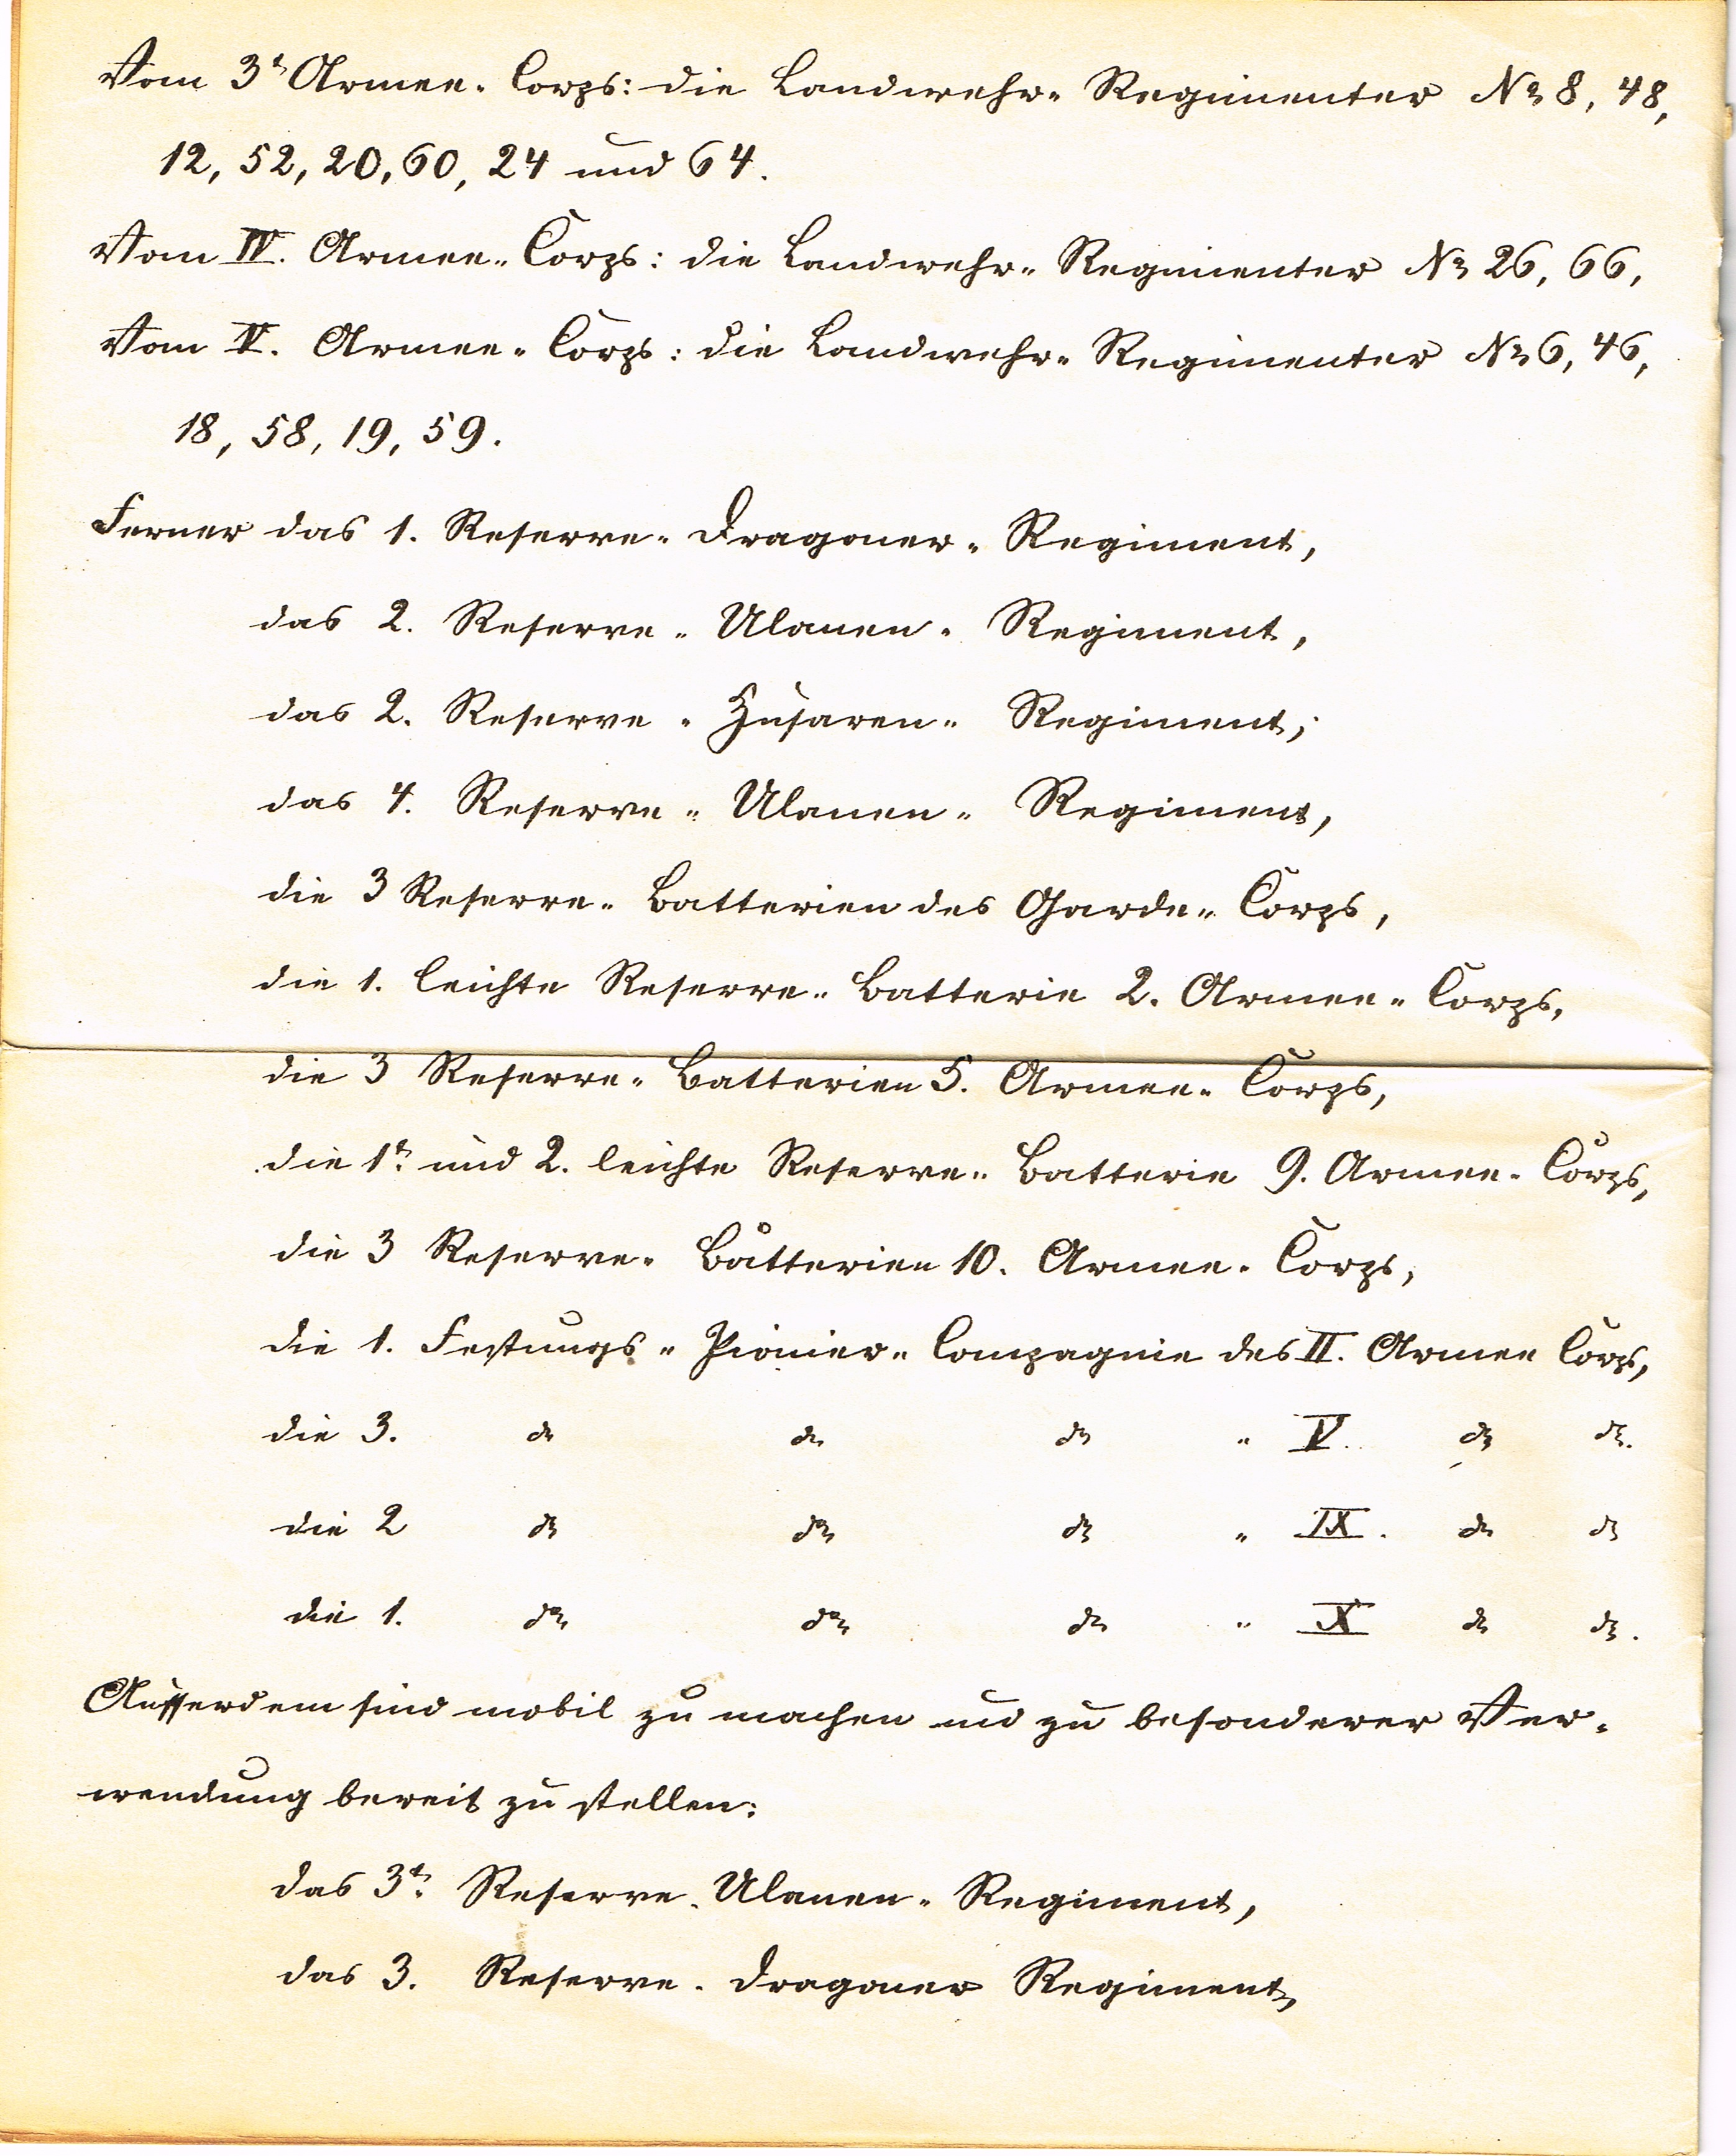 Vom 3t Armee-Corps: die Landwehr-Regimenter No 8, 48,
12, 52, 20, 60, 24 und 64.
Vom IV. Armee-Corps: die Landwehr-Regimenter No 26, 66,
Vom V. Armee-Corps: die Landwehr-Regimenter No 6, 46,
18, 58, 19, 59.
Ferner das 1. Reserve-Dragoner-Regiment,
das 2. Reserve-Ulanen-Regiment,
das 2. Reserve-Husaren-Regiment,
das 4. Reserve-Ulanen-Regiment,
die 3 Reserve-Batterien des Garde-Corps,
die 1. leichte Reserve-Batterie 2. Armee-Corps,
die 3 Reserve-Batterien 5. Armee-Corps,
die 1te und 2. leichte Reserve-Batterie 9. Armee-Corps,
die 3 Reserve-Batterien 10. Armee-Corps,
die 1. Festungs-Pionier-Compagnie des II. Armee Corps,
die 3. do do do " V. do do.
die 2 do do do " IX. do do
die 1. do do do " X do do.
Ausserdem sind mobil zu machen und zu besonderer Ver-
wendung bereit zu stellen:
das 3te Reserve-Ulanen-Regiment,
das 3. Reserve-Dragoner Regiment,